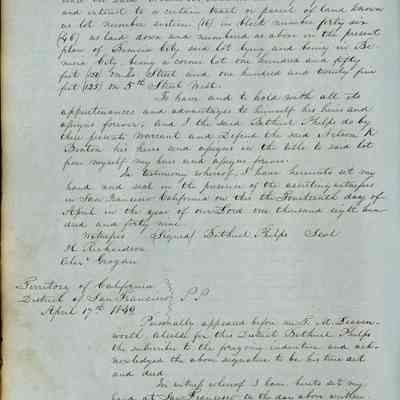 and interest to a certain tract or parcel of land known
as lot number sixteen (16) in block number forty six
(46) as laid down and numbered as above on the present
plan of Benicia City said lot lying and being in Be-
nicia City being a corner lot one hundred and fifty
feet (150) on Street and one hundred and twenty five
feet (125) on 5th Street West.
To have and to hold with all its
appurtenances and advantages to himself his heirs and
assigns forever, and I the said Bethuel Phelps do by
these presents Warrant and Defend the said Nelson R
his heirs and assigns in the title to said lot
from myself my heirs and assigns forever.
In testimony whereof I have hereunto set my
hand and seal in the presence of the assisting witnesses
in San Francisco California on this the Fourteenth day of
April in the year of our Lord one thousand eight hun
dred and forty nine
Witnesses Signed Bethuel Phelps Seal
H Richardson
Alexr Grogan
Territory of California
District of San Francisco S.S.
April 17th 1849
Personally appeared before me T. M. Leaven-
worth Alcalde for this District Bethuel Phelps
the subscriber to the foregoing indenture and ack-
nowledged the above signature to be his true act
and deed
In witness whereof I have hereto set my
hand at San Francisco the day above written